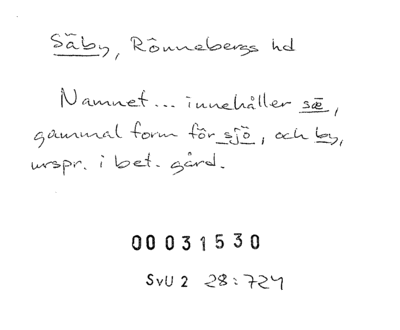 Säby, Rönnebergs hd
Namnet... innehåller sæ,
gammal form för sjö, och by,
urspr. i bet. gård.
00031530
SvU 2 28:724